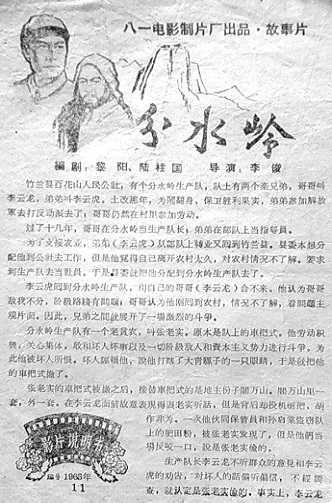 八一电影制片厂出品·故事片
分水岭
编剧:黎 阳、陆柱国 导演:李俊
竹兰县百花山人民公社,有个分水岭生产队,队上有两个亲兄弟,哥哥叫
李云龙,弟弟叫李云虎。土改那年,为了翻身、保卫胜利果实,弟弟参加解放
军去打反动派去了;哥哥仍然在村里参加劳动。
过了十几年,哥哥在分水岭当生产队长;弟弟在部队上当指导员。
为了支援农业,弟弟(李云虎)从部队上转业又回到竹兰县。县委本想分
配他到公社去工作,但是他觉得自己离开农村太久,对农村情况不了解。要求
到生产队去当社员,于是县委就把他分配到分水岭生产队去了。
李云虎回到分水岭生产队,和自己的哥哥(李云龙)合不来。他认为哥哥
敌我不分,阶级路线有问题;哥哥认为他刚回到农村,情况不了解,看问题主
观片面。因此,兄弟之间就展开了一场激烈的斗争。
分水岭生产队有个老贫农,叫张老实。原本是队上的车把式。他劳动积
极,关心集体,敢和坏人坏事以及一切阶级敌人和资本主义势力进行斗争,为
此他被坏人所恨。坏人诬赖他,说他打瞎了大青骡子的一只眼睛,于是就把他
的车把式撤了。
张老实的车把式被撤之后,接替车把式的是地主份子阎万山。阎万山里一
套,外一套。在李云龙面前故意表现得很老实听话,但是背后却投机倒把,胡
作非为。一次他伙同保管员和孙启棠盗窃队
上的肥田粉,被张老实发现了,但是他们当
场反咬一口,说是张老实偷的。
生产队长李云龙不听群众的意见和李云
虎的劝告,对坏人的话偏听偏信,不经调
查,就认定是张老实偷的。事实上,李云龙
电影新闻
编号1965年
11